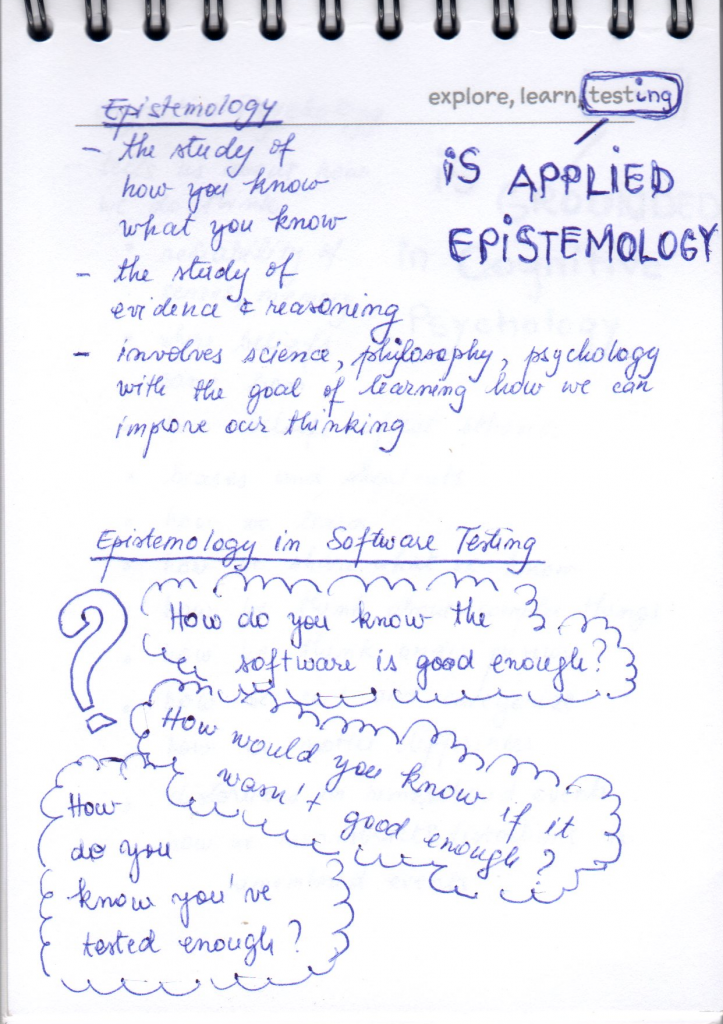 explore, learn, testing
Epistemology
IS APPLIED
EPISTEMOLOGY
- the study of
how you know
what you know
- the study of
evidence & reasoning
- involves science, philosophy, psychology
with the goal of learning how we can
improve our thinking
Epistemology in Software Testing
?
How do you know the
software is good enough?
How would you know if it
wasn't good enough?
How
do you
know you've
tested enough?